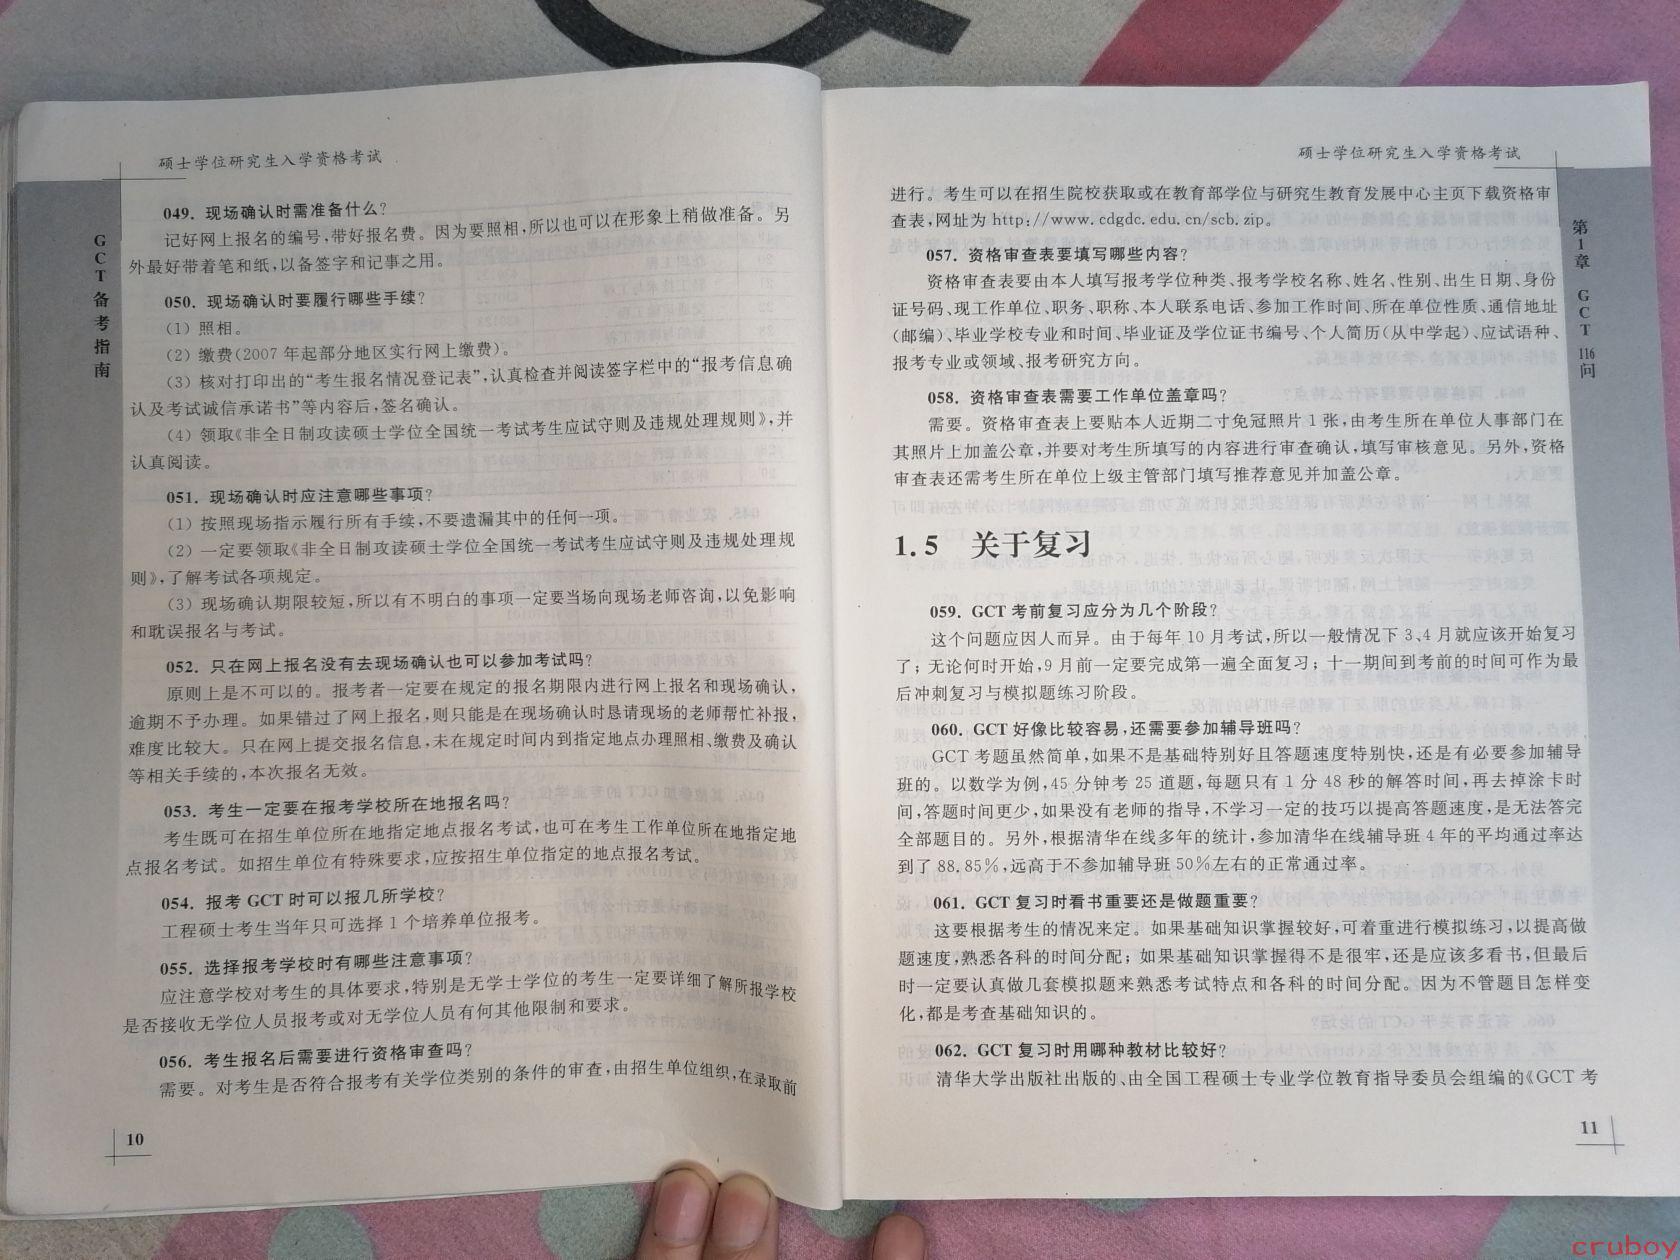 硕士学位研究生入学资格考试
GCT备考指南
049. 现场确认时需准备什么?
记好网上报名的编号,带好报名费。因为要照相,所以也可以在形象上稍做准备。另
外最好带着笔和纸,以备签字和记事之用。
050. 现场确认时要履行哪些手续?
(1) 照相。
(2) 缴费(2007 年起部分地区实行网上缴费)。
(3) 核对打印出的“考生报名情况登记表”,认真检查并阅读签字栏中的“报考信息确
认及考试诚信承诺书”等内容后,签名确认。
(4) 领取《非全日制攻读硕士学位全国统一考试考生应试守则及违规处理规则》,并
认真阅读。
051. 现场确认时应注意哪些事项?
(1) 按照现场指示履行所有手续,不要遗漏其中的任何一项。
(2) 一定要领取《非全日制攻读硕士学位全国统一考试考生应试守则及违规处理规
则》,了解考试各项规定。
(3) 现场确认期限较短,所以有不明白的事项一定要当场向现场老师咨询,以免影响
和耽误报名与考试。
052. 只在网上报名没有去现场确认也可以参加考试吗?
原则上是不可以的。报考者一定要在规定的报名期限内进行网上报名和现场确认,
逾期不予办理。如果错过了网上报名,则只能是在现场确认时恳请现场的老师帮忙补报,
难度比较大。只在网上提交报名信息,未在规定时间内到指定地点办理照相、缴费及确认
等相关手续的,本次报名无效。
053. 考生一定要在报考学校所在地报名吗?
考生既可在招生单位所在地指定地点报名考试,也可在考生工作单位所在地指定地
点报名考试。如招生单位有特殊要求,应按招生单位指定的地点报名考试。
054. 报考 GCT 时可以报几所学校?
工程硕士考生当年只可选择 1 个培养单位报考。
055. 选择报考学校时有哪些注意事项?
应注意学校对考生的具体要求,特别是无学士学位的考生一定要详细了解所报学校
是否接收无学位人员报考或对无学位人员有何其他限制和要求。
056. 考生报名后需要进行资格审查吗?
需要。对考生是否符合报考有关学位类别的条件的审查,由招生单位组织,在录取前
10
硕士学位研究生入学资格考试
第1章 GCT 116问
进行。考生可以在招生院校获取或在教育部学位与研究生教育发展中心主页下载资格审
查表,网址为 http://www.cdgdc.edu.cn/scb.zip。
057. 资格审查表要填写哪些内容?
资格审查表要由本人填写报考学位种类、报考学校名称、姓名、性别、出生日期、身份
证号码、现工作单位、职务、职称、本人联系电话、参加工作时间、所在单位性质、通信地址
(邮编)、毕业学校专业和时间、毕业证及学位证书编号、个人简历(从中学起)、应试语种、
报考专业或领域、报考研究方向。
058. 资格审查表需要工作单位盖章吗?
需要。资格审查表上要贴本人近期二寸免冠照片 1 张,由考生所在单位人事部门在
其照片上加盖公章,并要对考生所填写的内容进行审查确认,填写审核意见。另外,资格
审查表还需考生所在单位上级主管部门填写推荐意见并加盖公章。
1.5 关于复习
059. GCT 考前复习应分为几个阶段?
这个问题应因人而异。由于每年 10 月考试,所以一般情况下 3、4 月就应该开始复习
了; 无论何时开始,9 月前一定要完成第一遍全面复习; 十一期间到考前的时间可作为最
后冲刺复习与模拟题练习阶段。
060. GCT 好像比较容易,还需要参加辅导班吗?
GCT 考题虽然简单,如果不是基础特别好且答题速度特别快,还是有必要参加辅导
班的。以数学为例,45 分钟考 25 道题,每题只有 1 分 48 秒的解答时间,再去掉涂卡时
间,答题时间更少,如果没有老师的指导,不学习一定的技巧以提高答题速度,是无法答完
全部题目的。另外,根据清华在线多年的统计,参加清华在线辅导班 4 年的平均通过率达
到了 88.85%,远高于不参加辅导班 50%左右的正常通过率。
061. GCT 复习时看书重要还是做题重要?
这要根据考生的情况来定。如果基础知识掌握较好,可着重进行模拟练习,以提高做
题速度,熟悉各科的时间分配; 如果基础知识掌握得不是很牢,还是应该多看书,但最后
时一定要认真做几套模拟题来熟悉考试特点和各科的时间分配。因为不管题目怎样变
化,都是考查基础知识的。
062. GCT 复习时用哪种教材比较好?
清华大学出版社出版的、由全国工程硕士专业学位教育指导委员会组编的《GCT 考
11
cruboy